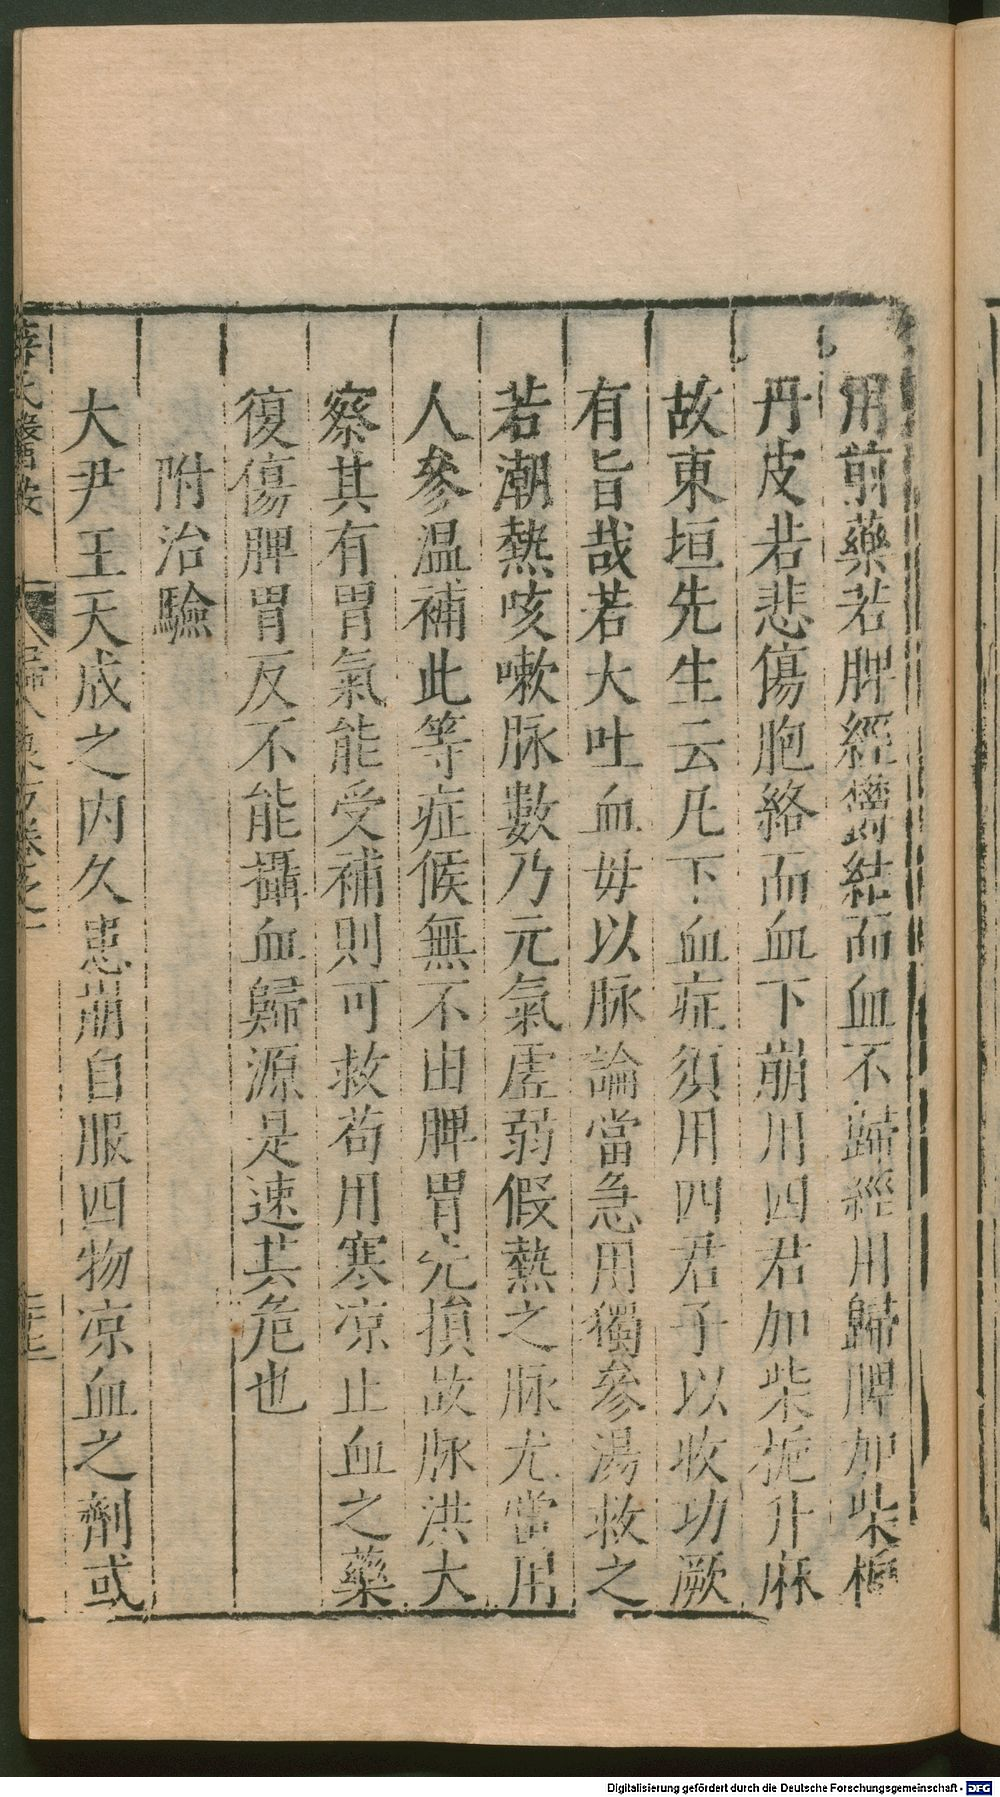 用前藥若脾經鬱結而血不歸經用歸脾加柴梔
丹皮若悲傷胞絡而血下崩用四君加柴梔升麻
故東垣先生云凡下血症須用四君子以收功厥
有旨哉若大吐血毋以脉論當急用獨參湯救之
若潮熱咳嗽脉數乃元氣虛弱假熱之脉尤當用
人參温補此等症候無不由脾胃先損故脉洪大
察其有胃氣能受補則可救苟用寒凉止血之藥
復傷脾胃反不能攝血歸源是速其危也
附治驗
大尹王天成之内久患崩自服四物凉血之劑或
薛氏醫按
婦人良方卷之一
二十七
Digitalisierung gefördert durch die Deutsche Forschungsgemeinschaft - DFG